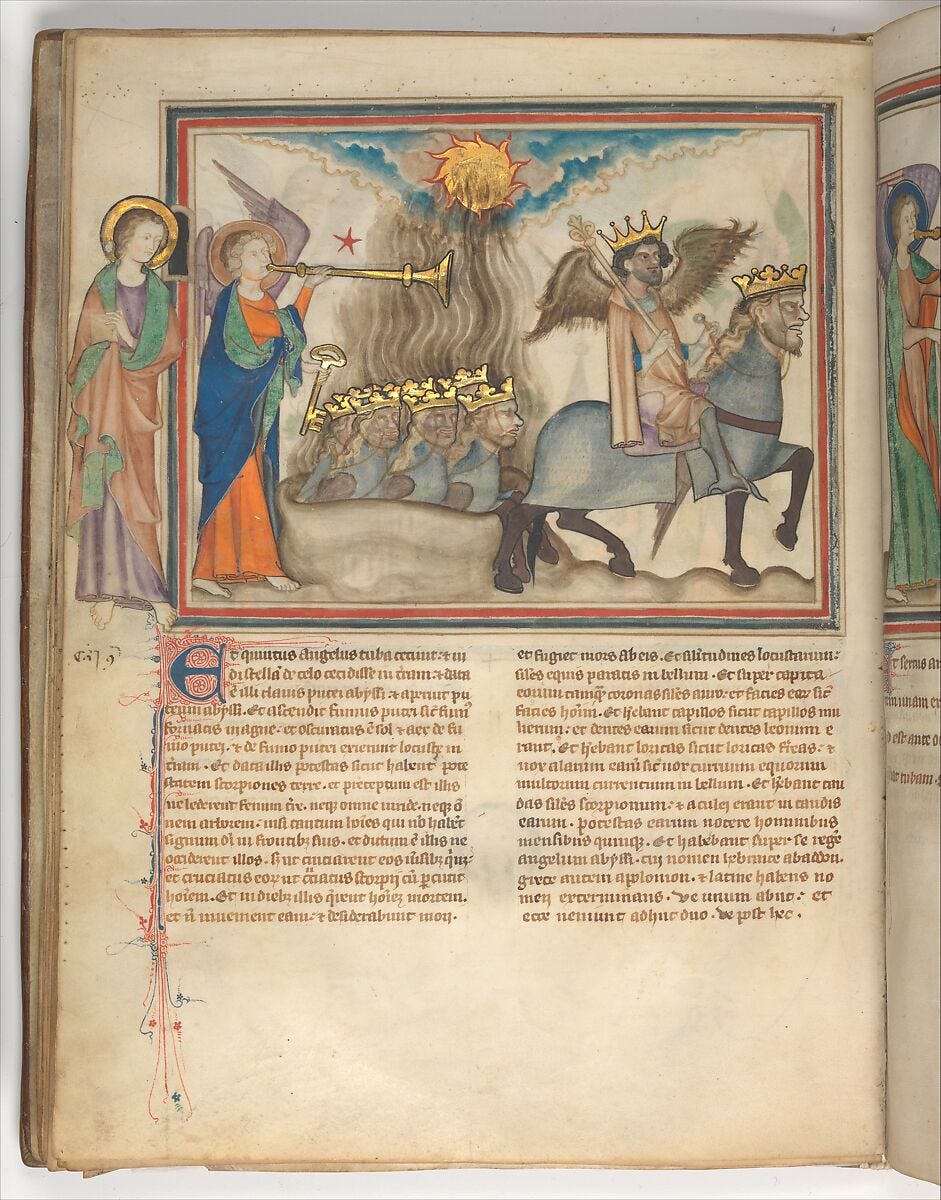 Et quintus angelus tuba cecinit· et ui
di stellam de celo cecidisse in terram· et data
est illi clauis putei abyssi· et aperuit pu
teum abyssi· Et ascendit fumus putei sic fumus
fornacis magne· et obscuratus est sol et aer de fu
mo putei· et de fumo putei exierunt locuste in
terram· Et data illis potestas sicut habent pote
statem scorpiones terre· et preceptum est illis
ne lederent fenum terre· neque omne uiride· neque om
nem arborem· nisi tantum homines qui non habent
signum dei in frontibus suis· et dictum est illis ne
occiderent illos· sed ut cruciarent eos mensibus quinque·
et cruciatus eorum ut cruciatus scorpii cum percutit
hominem· Et in diebus illis querent homines mortem·
et non inuenient eam· et desiderabunt mori·
et fugiet mors ab eis· Et similitudines locustarum·
similes equis paratis in bellum· Et super capita
earum tamquam corone similes auro· et facies earum sicut
facies hominum· Et habebant capillos sicut capillos mu
lierum· et dentes earum sicut dentes leonum e
rant· Et habebant loricas sicut loricas ferreas· et
uox alarum earum sicut uox curruum equorum
multorum currentium in bellum· Et habebant cau
das similes scorpionum· et aculei erant in caudis
earum· potestas earum nocere hominibus
mensibus quinque· Et habebant super se regem
angelum abyssi· cui nomen hebraice abaddon·
grece autem apolonion· et latine habens no
men exterminans· ve unum abiit· et
ecce ueniunt adhuc duo· ve post hec·